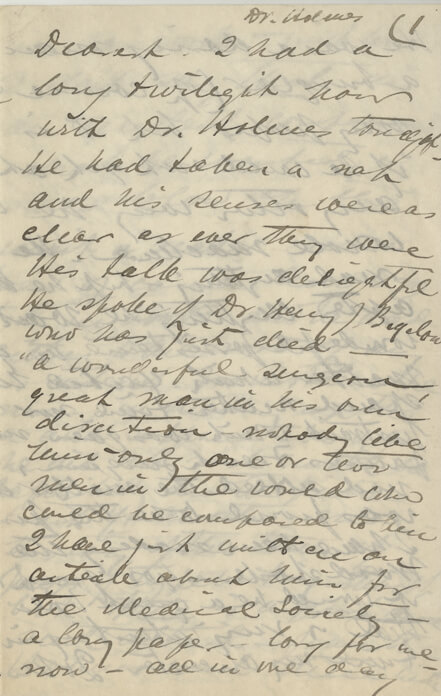 Dr. Holmes (1
Dearest. I had a
long twilight hour
with Dr. Holmes tonight_
He had taken a nap
and his senses were as
clear as ever they were
His talk was delightful
He spoke of Dr. Henry J Bigelow
who has just died —
"a wonderful surgeon'
great man in his own
direction - nobody like
him - only one or two
men in the world who
could be compared to him
I have just written an
article about him for
the Medical Society -
a long paper - long for me -
now - all in one day